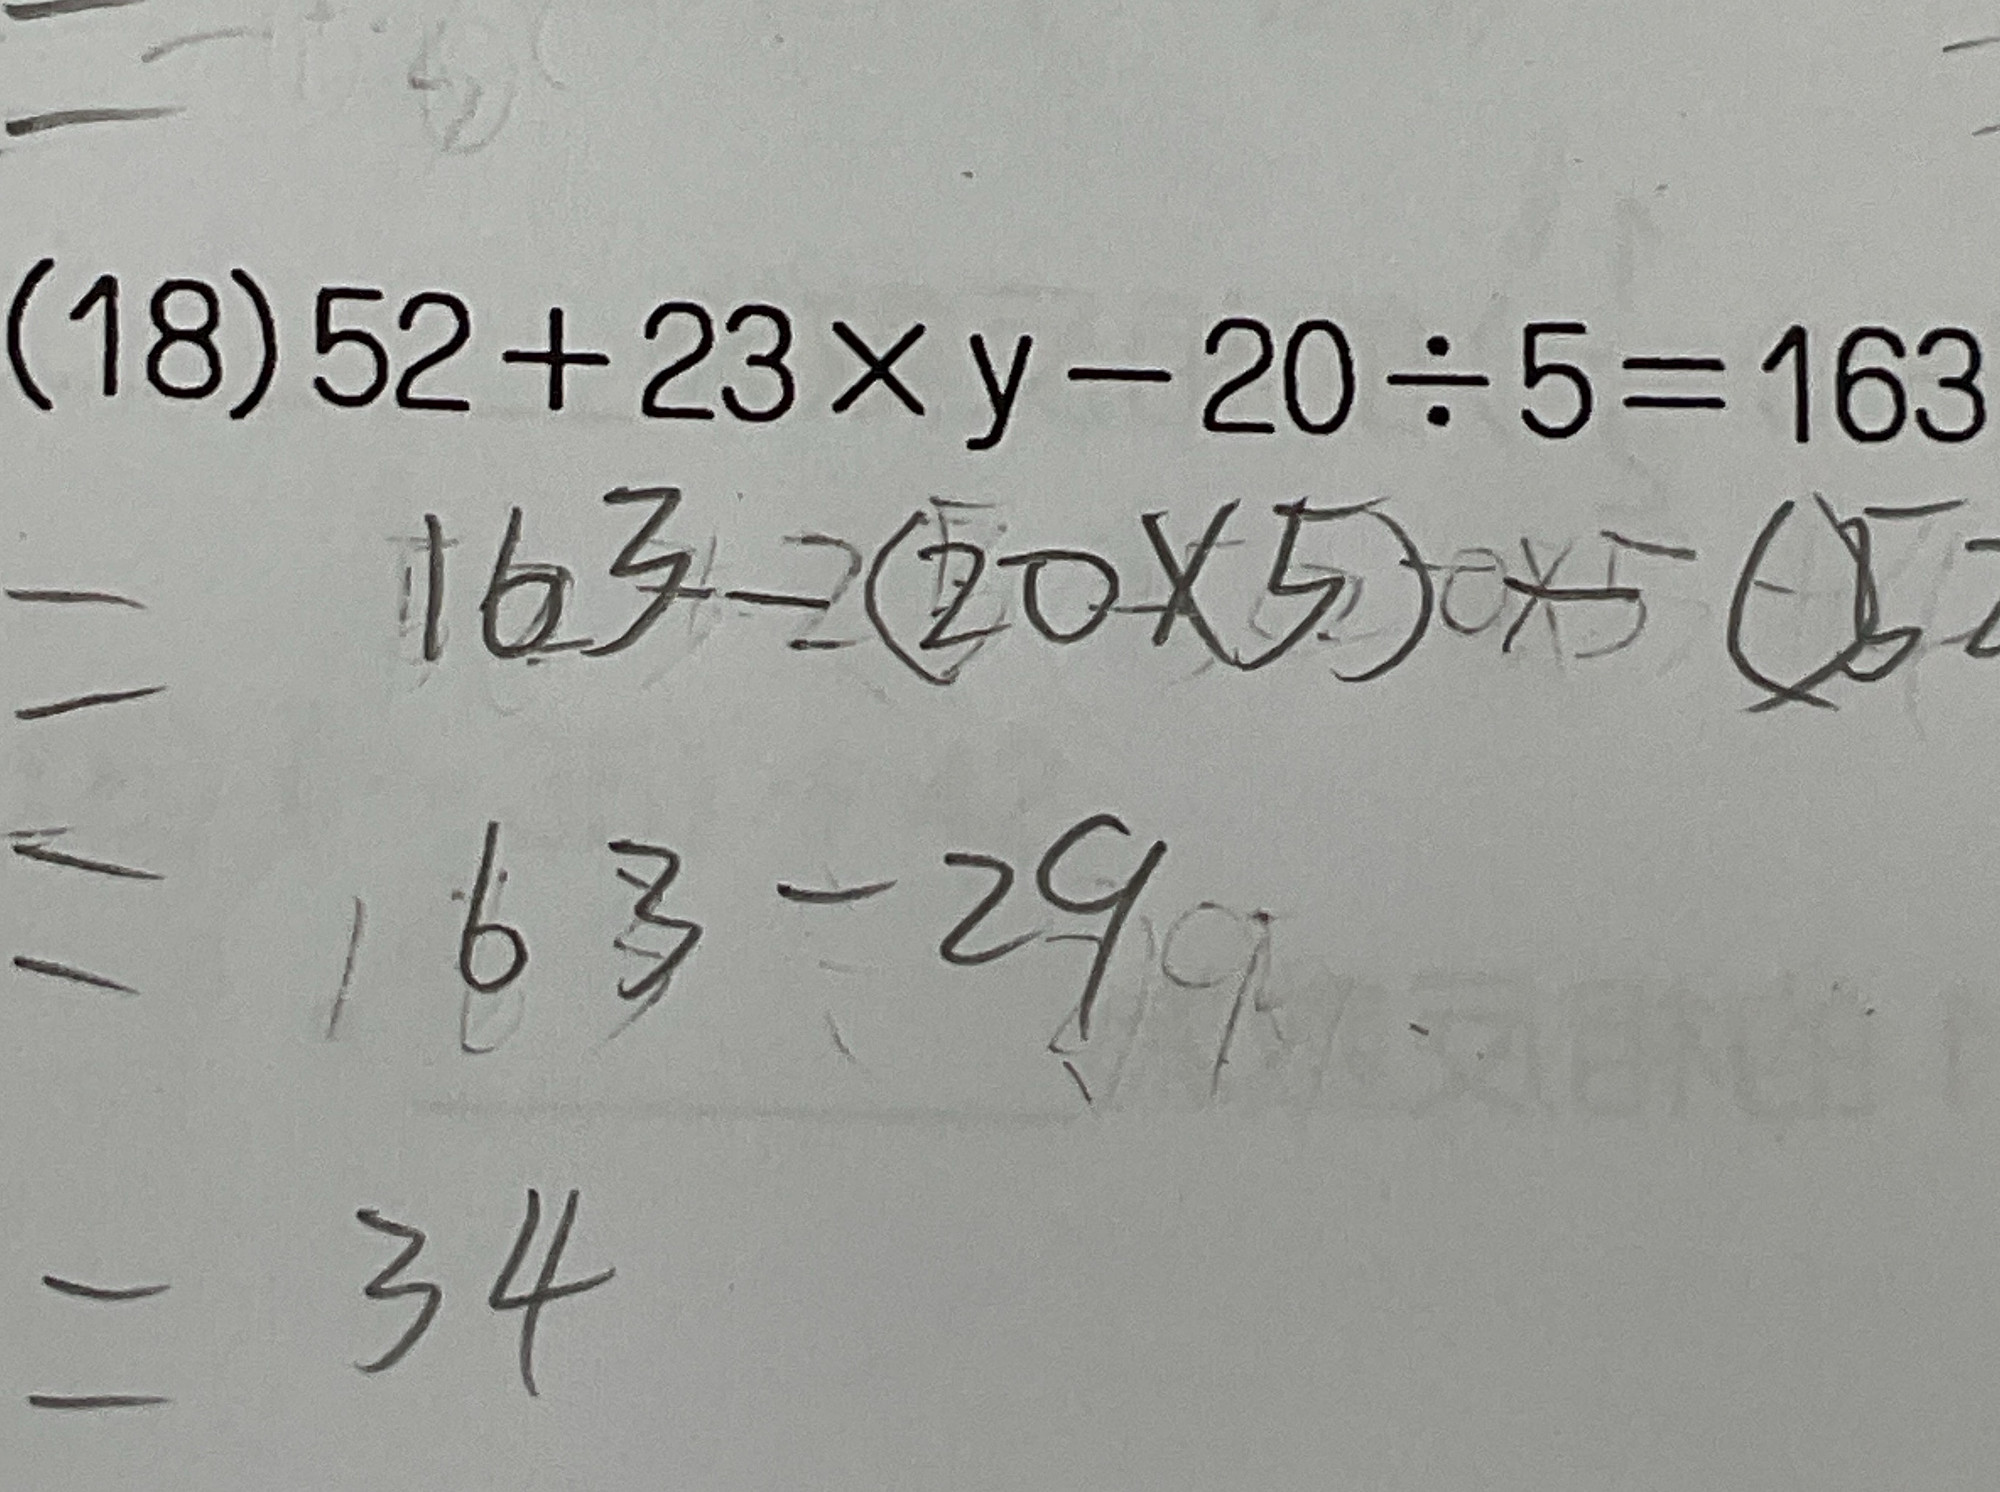 (18) 52 + 23 × y − 20 ÷ 5 = 163
= 163 − (20 × (5) (52
= 163 − 29
= 34